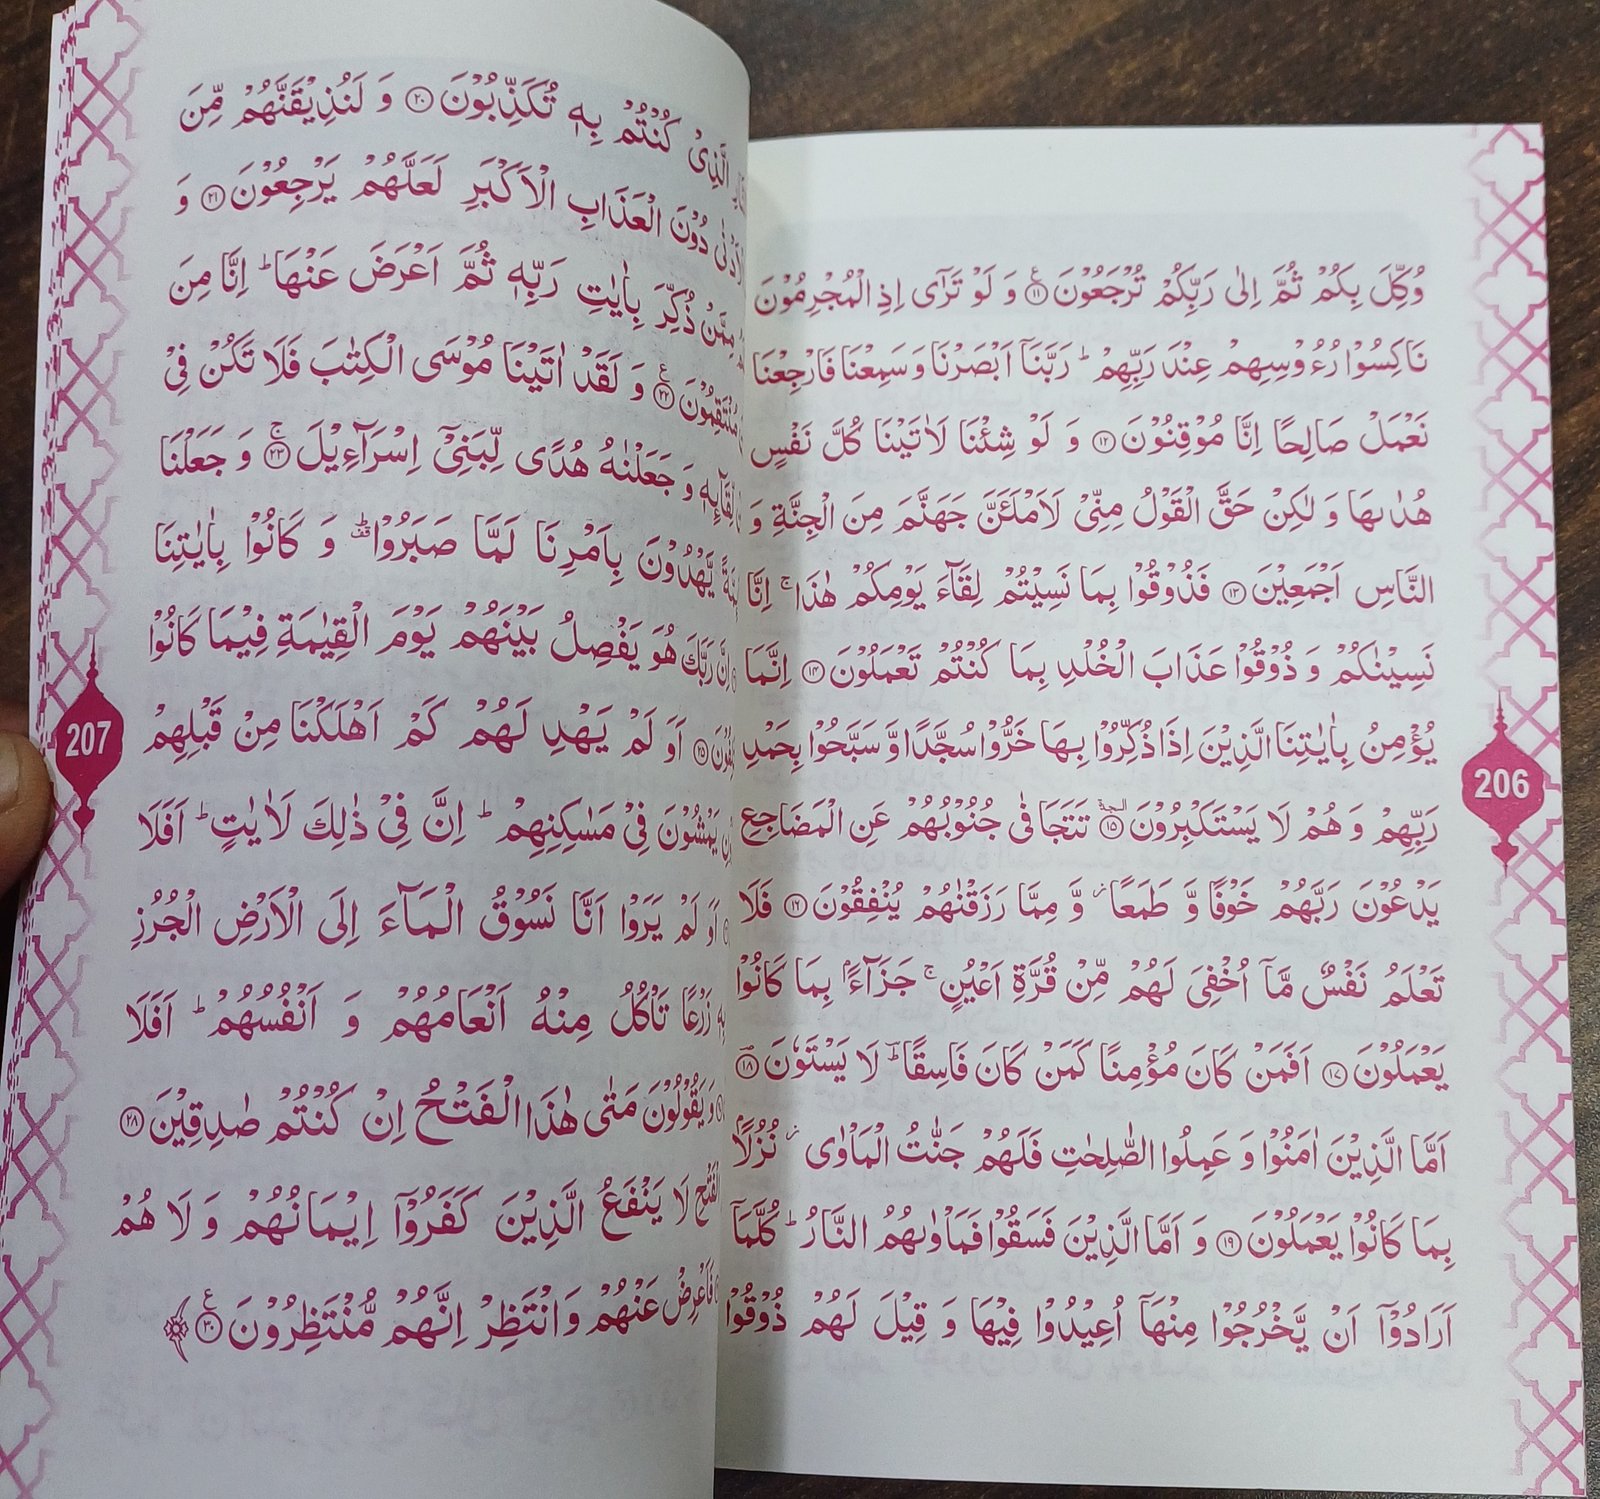 وُكِّلَ بِكُمْ ثُمَّ اِلٰى رَبِّكُمْ تُرْجَعُوْنَ ۝۱۱ ع وَ لَوْ تَرٰۤى اِذِ الْمُجْرِمُوْنَ
نَاكِسُوْا رُءُوْسِهِمْ عِنْدَ رَبِّهِمْ ؕ رَبَّنَاۤ اَبْصَرْنَا وَ سَمِعْنَا فَارْجِعْنَا
نَعْمَلْ صَالِحًا اِنَّا مُوْقِنُوْنَ ۝۱۲ وَ لَوْ شِئْنَا لَاٰتَيْنَا كُلَّ نَفْسٍ
هُدٰىهَا وَ لٰكِنْ حَقَّ الْقَوْلُ مِنِّيْ لَاَمْلَـَٔنَّ جَهَنَّمَ مِنَ الْجِنَّةِ وَ
النَّاسِ اَجْمَعِيْنَ ۝۱۳ فَذُوْقُوْا بِمَا نَسِيْتُمْ لِقَآءَ يَوْمِكُمْ هٰذَا ۚ اِنَّا
نَسِيْنٰكُمْ وَ ذُوْقُوْا عَذَابَ الْخُلْدِ بِمَا كُنْتُمْ تَعْمَلُوْنَ ۝۱۴ اِنَّمَا
يُؤْمِنُ بِاٰيٰتِنَا الَّذِيْنَ اِذَا ذُكِّرُوْا بِهَا خَرُّوْا سُجَّدًا وَّ سَبَّحُوْا بِحَمْدِ
رَبِّهِمْ وَ هُمْ لَا يَسْتَكْبِرُوْنَ ۝۱۵ السجدة تَتَجَافٰى جُنُوْبُهُمْ عَنِ الْمَضَاجِعِ
يَدْعُوْنَ رَبَّهُمْ خَوْفًا وَّ طَمَعًا ؗ وَّ مِمَّا رَزَقْنٰهُمْ يُنْفِقُوْنَ ۝۱۶ فَلَا
تَعْلَمُ نَفْسٌ مَّاۤ اُخْفِيَ لَهُمْ مِّنْ قُرَّةِ اَعْيُنٍ ۚ جَزَآءًۢ بِمَا كَانُوْا
يَعْمَلُوْنَ ۝۱۷ اَفَمَنْ كَانَ مُؤْمِنًا كَمَنْ كَانَ فَاسِقًا ؔؕ لَا يَسْتَوٗنَ ۝۱۸
اَمَّا الَّذِيْنَ اٰمَنُوْا وَ عَمِلُوا الصّٰلِحٰتِ فَلَهُمْ جَنّٰتُ الْمَاْوٰى ؗ نُزُلًۢا
بِمَا كَانُوْا يَعْمَلُوْنَ ۝۱۹ وَ اَمَّا الَّذِيْنَ فَسَقُوْا فَمَاْوٰىهُمُ النَّارُ ؕ كُلَّمَاۤ
اَرَادُوْۤا اَنْ يَّخْرُجُوْا مِنْهَاۤ اُعِيْدُوْا فِيْهَا وَ قِيْلَ لَهُمْ ذُوْقُوْا
206
الَّذِيْ كُنْتُمْ بِهٖ تُكَذِّبُوْنَ ۝۲۰ وَ لَنُذِيْقَنَّهُمْ مِّنَ
دُوْنَ الْعَذَابِ الْاَكْبَرِ لَعَلَّهُمْ يَرْجِعُوْنَ ۝۲۱ وَ
مِمَّنْ ذُكِّرَ بِاٰيٰتِ رَبِّهٖ ثُمَّ اَعْرَضَ عَنْهَا ؕ اِنَّا مِنَ
مُنْتَقِمُوْنَ ۝۲۲ ع وَ لَقَدْ اٰتَيْنَا مُوْسَى الْكِتٰبَ فَلَا تَكُنْ فِيْ
لِّقَآىِٕهٖ وَ جَعَلْنٰهُ هُدًى لِّبَنِيْۤ اِسْرَآءِيْلَ ۝۲۳ ۚ وَ جَعَلْنَا
يَّهْدُوْنَ بِاَمْرِنَا لَمَّا صَبَرُوْا ؕقف وَ كَانُوْا بِاٰيٰتِنَا
اِنَّ رَبَّكَ هُوَ يَفْصِلُ بَيْنَهُمْ يَوْمَ الْقِيٰمَةِ فِيْمَا كَانُوْا
۝۲۵ اَوَ لَمْ يَهْدِ لَهُمْ كَمْ اَهْلَكْنَا مِنْ قَبْلِهِمْ
يَمْشُوْنَ فِيْ مَسٰكِنِهِمْ ؕ اِنَّ فِيْ ذٰلِكَ لَاٰيٰتٍ ؕ اَفَلَا
اَوَ لَمْ يَرَوْا اَنَّا نَسُوْقُ الْمَآءَ اِلَى الْاَرْضِ الْجُرُزِ
بِهٖ زَرْعًا تَاْكُلُ مِنْهُ اَنْعَامُهُمْ وَ اَنْفُسُهُمْ ؕ اَفَلَا
وَ يَقُوْلُوْنَ مَتٰى هٰذَا الْفَتْحُ اِنْ كُنْتُمْ صٰدِقِيْنَ ۝۲۸
الْفَتْحِ لَا يَنْفَعُ الَّذِيْنَ كَفَرُوْۤا اِيْمَانُهُمْ وَ لَا هُمْ
فَاَعْرِضْ عَنْهُمْ وَ انْتَظِرْ اِنَّهُمْ مُّنْتَظِرُوْنَ ۝۳۰ ع
207